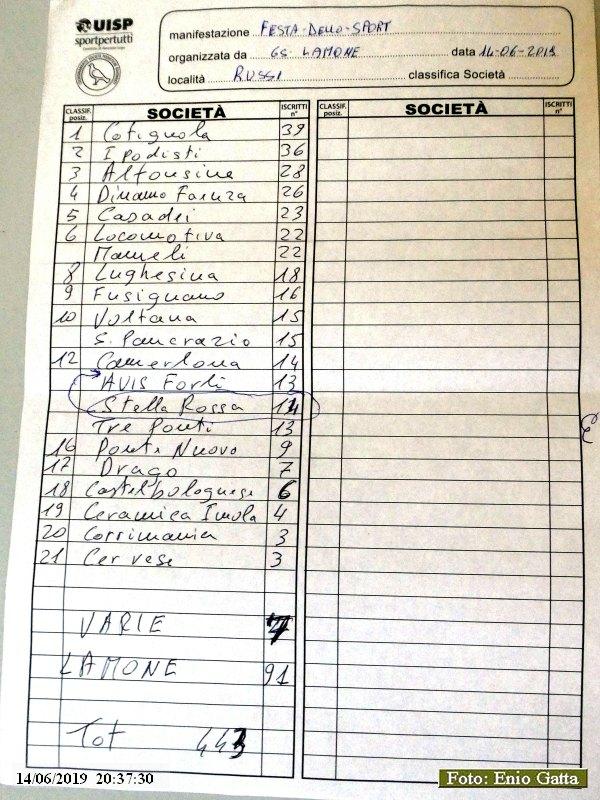 UISP
sportpertutti
manifestazione FESTA-DELLO-SPORT
organizzata da GS. LAMONE data 14-06-2019
località RUSSI classifica Società
CLASSIF. posiz. SOCIETÀ ISCRITTI n° CLASSIF. posiz. SOCIETÀ ISCRITTI n°
1 Cotignola 39
2 Ipodisti 36
3 Alfonsine 28
4 Dinamo Faenza 26
5 Casadei 23
6 Locomotiva 22
Mameli 22
8 Lughesina 18
9 Fusignano 16
10 Voltana 15
S. Pancrazio 15
12 Camerlona 14
AVIS Forlì 13
Stella Rossa 14
Tre Ponti 13
16 Ponte Nuovo 9
17 Drago 7
18 Castelbolognese 6
19 Ceramica Imola 4
20 Corrimania 3
21 Cervese 3
VARIE
LAMONE 91
Tot 443
14/06/2019 20:37:30
Foto: Enio Gatta